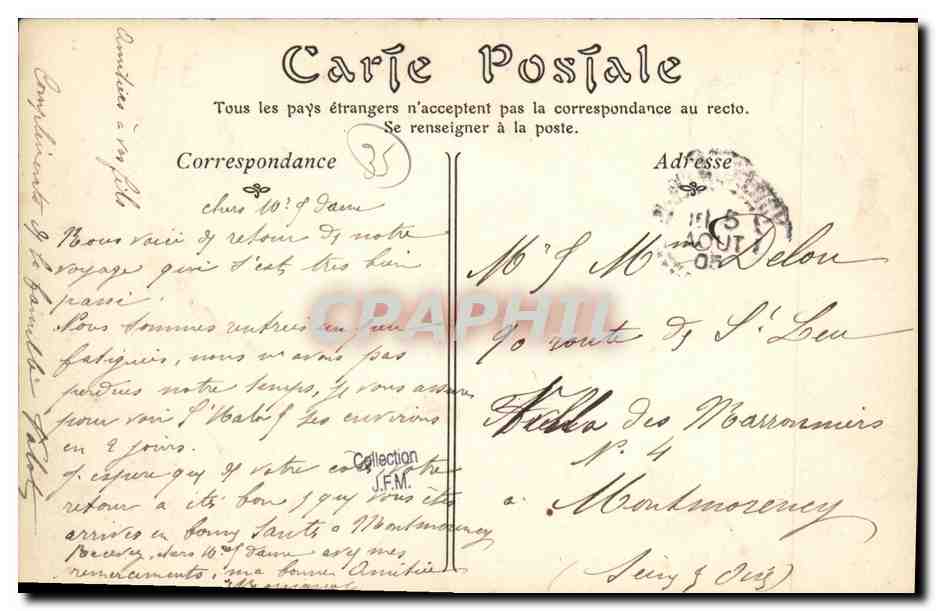 Carte Postale
Tous les pays étrangers n'acceptent pas la correspondance au recto.
Se renseigner à la poste.
Correspondance
35
chers Mr & dame
Nous voici de retour de notre
voyage qui s'est très bien
passé.
Nous sommes entrées un peu
fatiguées, nous n'avons pas
perdues notre temps, je vous assure
pour voir St Malo & ses environs
en 2 jours.
J'espère que de votre coté, votre
retour a été bon & que vous êtes
arrivés en bonne santé à Montmorency
Recevez, chers Mr & dame avec mes
remerciements, ma bonne Amitiée
Compliments de la famille
Amitiées à vos fils
Adresse
5
AOUT
05
Mr & Mme Delou
90 route de St Leu
Villa des Marronniers
N. 4
à Montmorency
(Seine & Oise)
Collection
J.F.M.
CPAPHIL